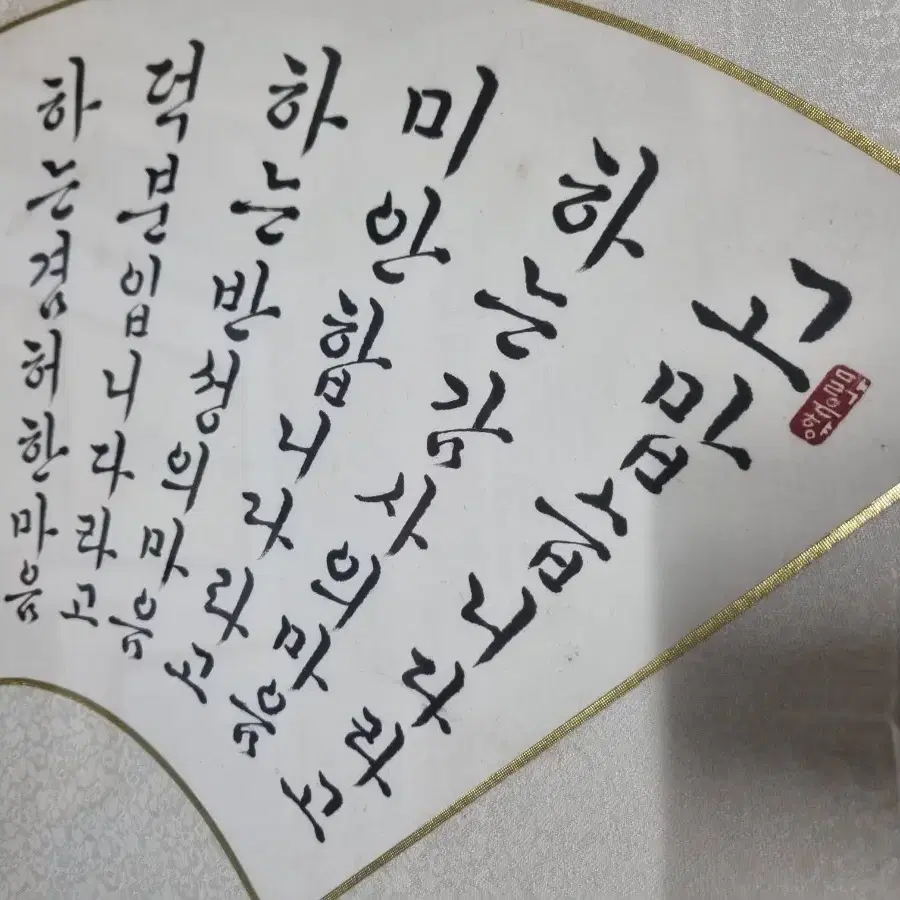 고맙습니다라고
하는감사의마음
미안합니다라고
하는반성의마음
덕분입니다라고
하는겸허한마음